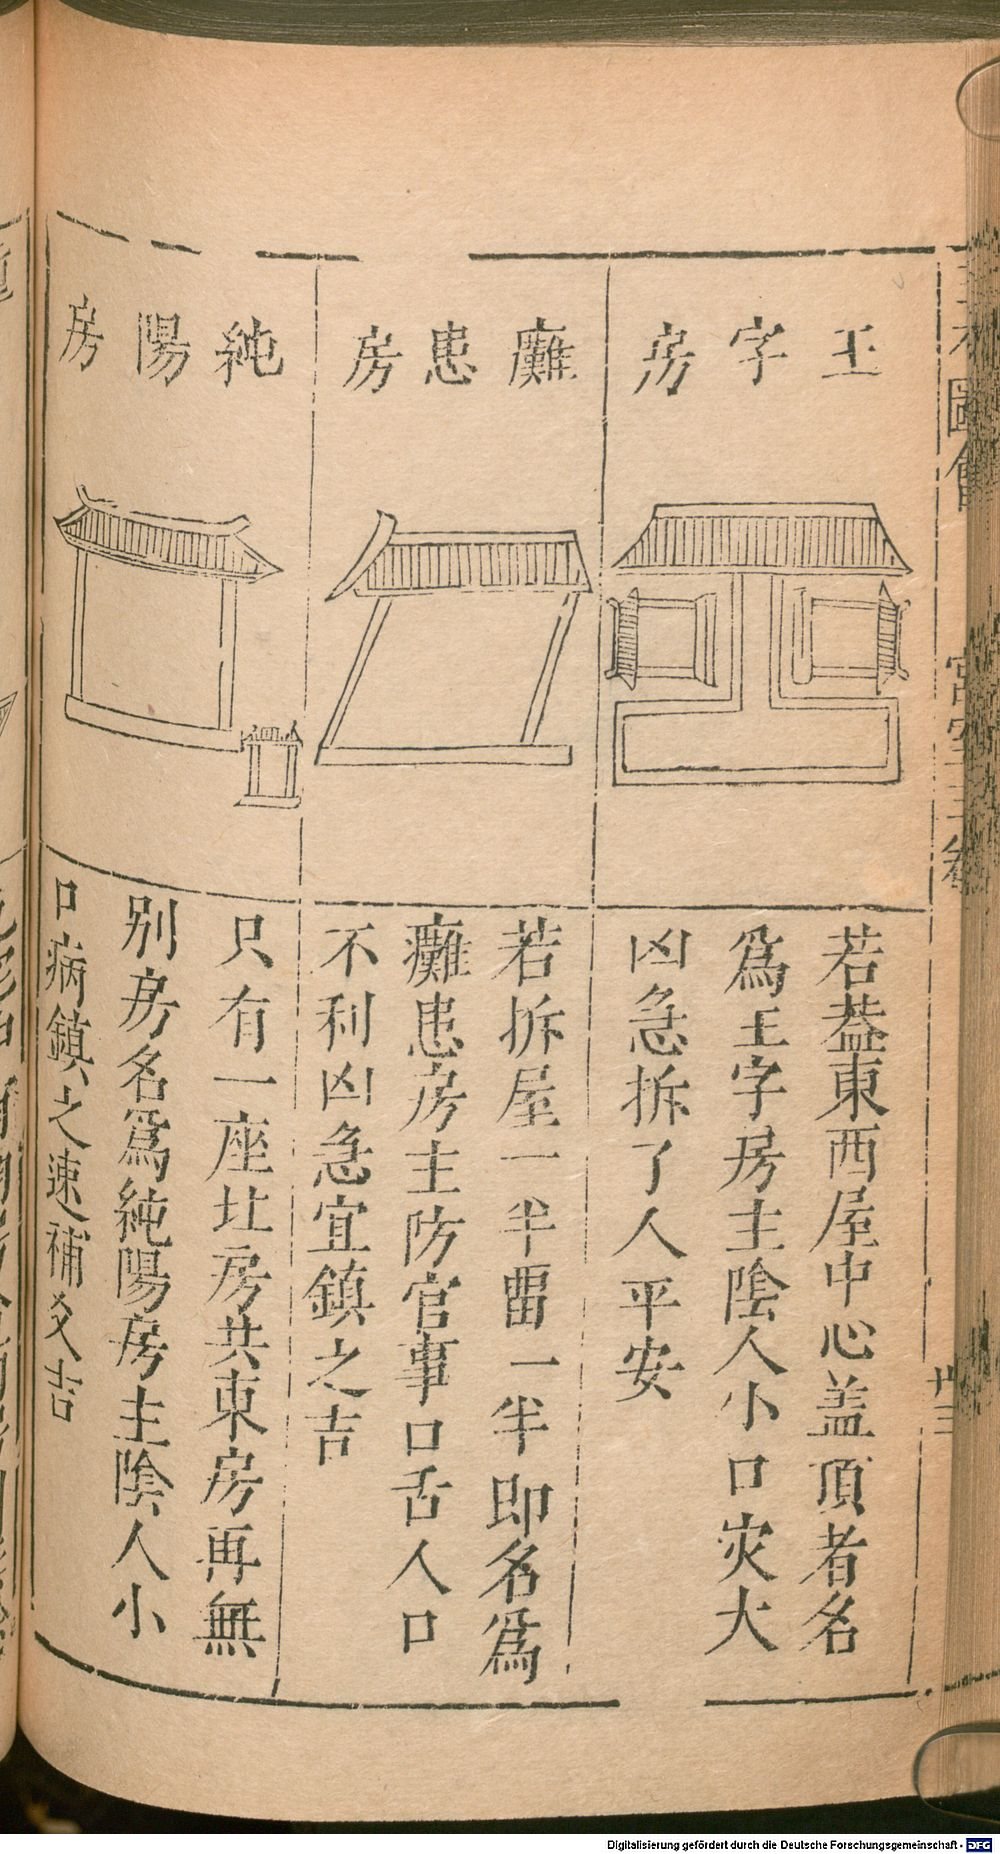 三才圖會
宮室
王字房
若葢東西屋中心盖頂者名
爲王字房主陰人小口灾大
凶急拆了人平安
癱患房
若拆屋一半畱一半即名爲
癱患房主防官事口舌人口
不利凶急宜鎮之吉
純陽房
只有一座北房共東房再無
别房名爲純陽房主陰人小
口病鎮之速補爻吉
Digitalisierung gefördert durch die Deutsche Forschungsgemeinschaft - DFG